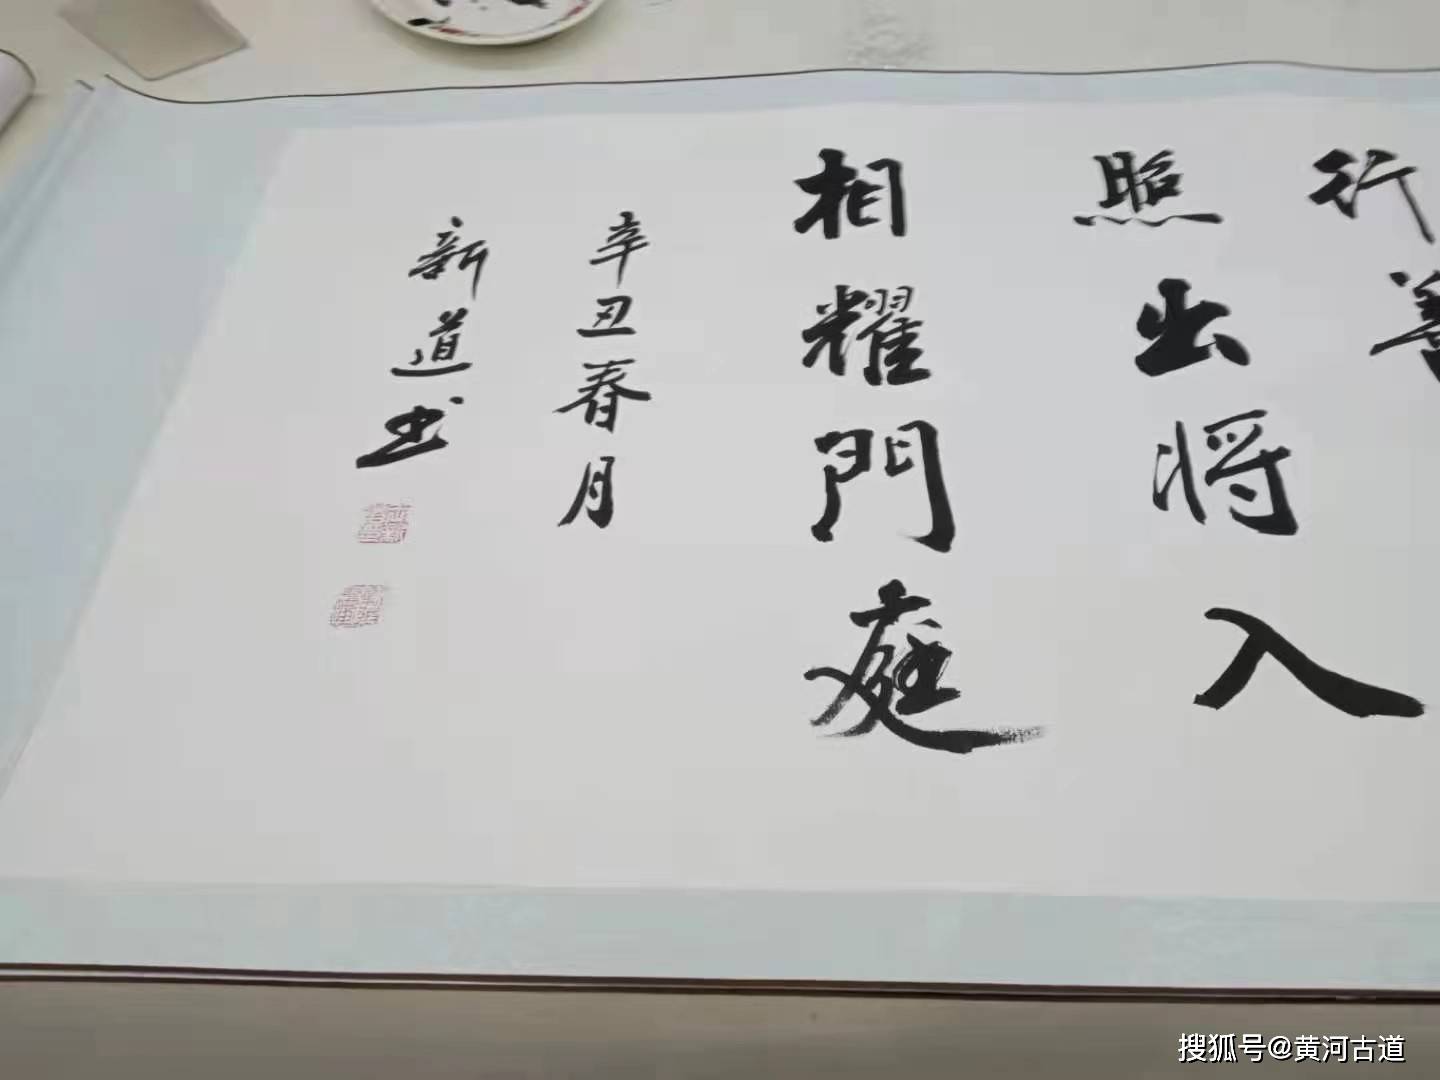 行善
照出将入
相耀門庭
辛丑春月
新道书
搜狐号@黄河古道